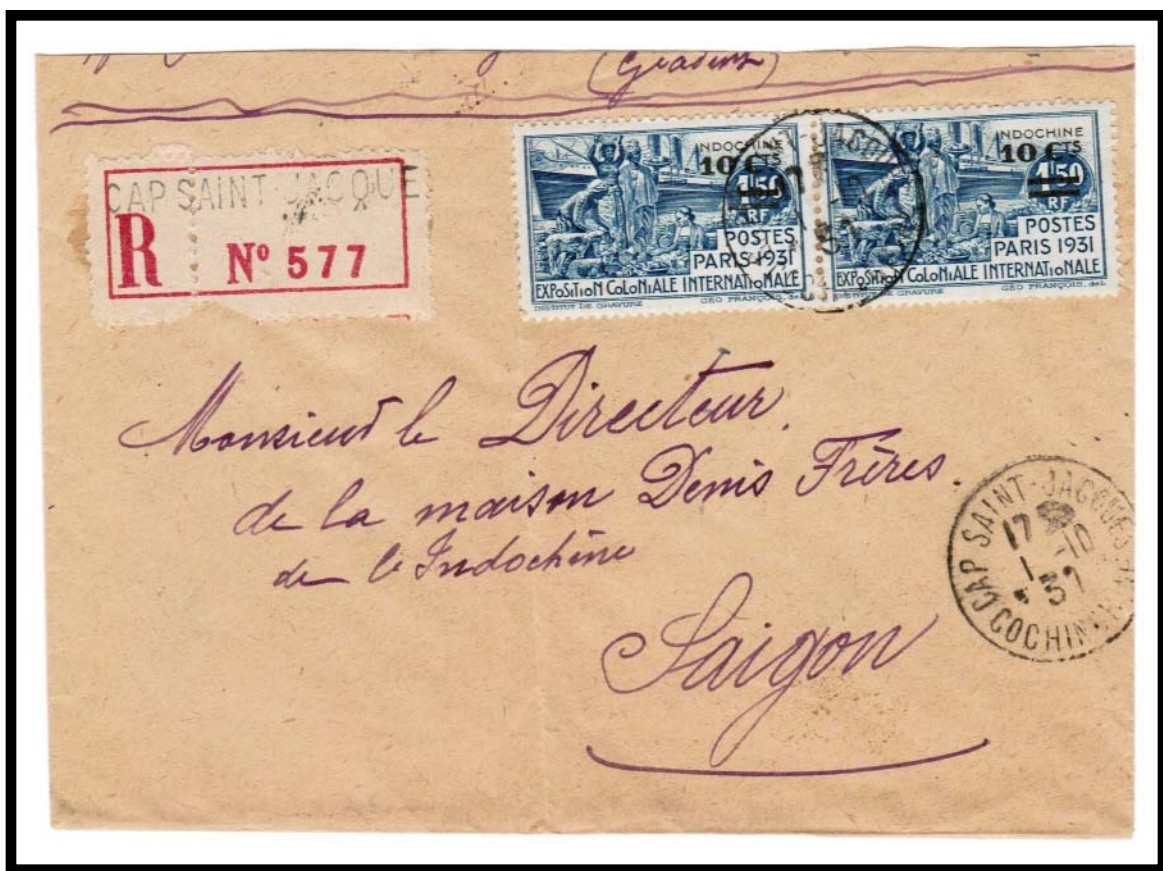 (Gradens)
CAP SAINT JACQUE
R Nº 577
INDOCHINE
10 CTS
1F50
RF
POSTES
PARIS 1931
EXPOSITION COLONIALE INTERNATIONALE
INSTITUT DE GRAVURE GEO FRANÇOIS, del.
INDOCHINE
10 CTS
1F50
RF
POSTES
PARIS 1931
EXPOSITION COLONIALE INTERNATIONALE
INSTITUT DE GRAVURE GEO FRANÇOIS, del.
Monsieur le Directeur.
de la maison Denis Frères.
de l'Indochine
Saigon
CAP SAINT-JACQUES
17
1 -10
31
COCHINCHINE